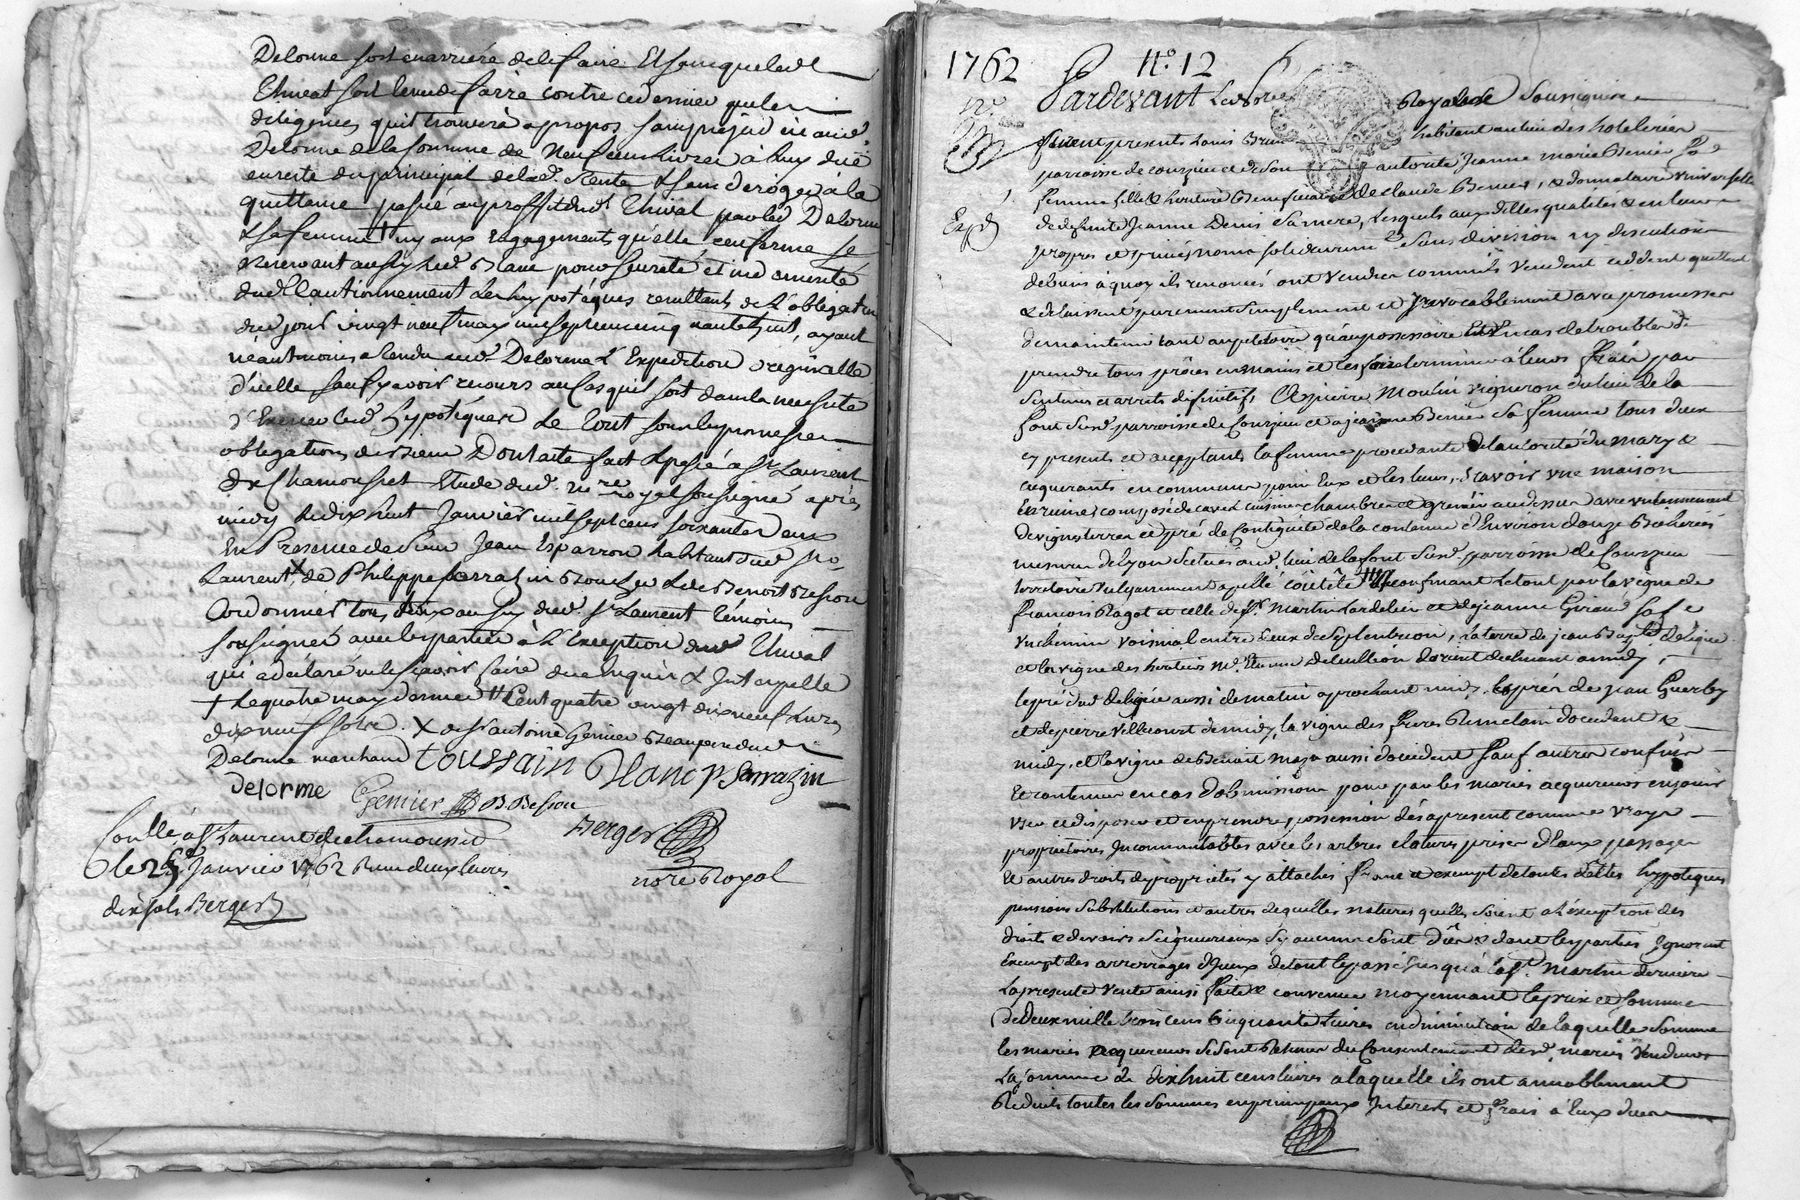 Delorme soit en arriere de le faire Et sans que led.
Thivat soit tenu de faire contre ce dernier que les
diligences quil trouvera apropos sans prejudice aud.
Delorme de la somme de neuf cens livres à luy duë
en reste du principal de lad. Rente & sans deroger à la
quittance passée au proffit dud. Thivat par led Delorme
& sa femme † ny aux Engagements qu'elle renferme se
Reservant aussy led. Blanc pour seureté et indemnité
dud Cautionnement Les hypotéques resultants de L'obligation
du jour vingt neuf may mil sept cens cinquante huit, ayant
néantmoins Rendu aud. Delorme L'Expedition originalle
d'icelle sauf y avoir recours au Cas quil soit dans la necessité
d'Exercer lesd. hypotéques Le tout sous les promesses
obligations de biens Dont acte fait & passé a St Laurent
de Chamousset Etude dud. nore royal soussigné après
midy le dix huit Janvier mil sept cens soixante deux
En Presence de Sieur Jean Esparron habitant dud. St
Laurent, X de Philippe Sarrazin Boucher & de Benoit Besson
Cordonnier tous deux aussy dud. St Laurent Témoins
soussignés avec les parties à L'Exception dud Thivat
qui a declaré ne le scavoir faire de ce Enquis & Interpellé
† Le quatre may dernier †† Cent quatre vingt dix neuf livres
dix neuf sols. X de Sr antoine Genier Beaupere dud
Delorme marchand toussain Blanc P. Sarrazin
delorme Genier B. Besson
Berger
nore Royal
Conllé à St Laurent de chamousset
le 25 Janvier 1762 Reçu deux livres
dix sols Berger
1762 N°. 12
Pardevant Le Nore Royal Soussigné
furent presents Louis Brun habitant au lieu des hoteleries
parroisse de courzieu et de son autorité Jeanne marie Bernier sa
femme fille & heritiere Beneficiaire de claude Bernier, & donnataire universelle
de defunte Jeanne Denis sa mere, Lesquels aux dittes qualités & en leurs
propres et privés noms solidairement sans division ny discution
de biens à quoy ils renoncés ont vendu comme ils vendent cedent quittent
& delaissent purement simplement et Irrevocablement avec promesse
de maintenir tant au petitoire qu'au possessoire Et en cas de trouble de
prendre tous procès en mains et les faire terminer à leurs frais par
sentences et arrets difinitifs, A pierre Moulin vigneron du lieu de la
font susd. parroisse de Courzieu et a jeanne Bernier sa femme tous deux
cy presents et acceptants la femme procedante de l'autorité du mary &
acquerants en commun pour Eux et les leurs, Scavoir une maison
En ruine composée de cave cuisine chambre et grenier au dessus avec un tenement
de vigne terre et pré de contiguité de la contenue d'Environ douze Bicherées
mesure de Lyon scitués aud. lieu de la font susd. parroisse de Courzieu
territoire vulgairement apellé confinant le tout par la vigne de
françois Ragot et celle de Sr. Martin Lardelier et de jeanne Giraud sa fe
un chemin voisinal entre deux de septentrion, la terre de jean Baptte deligue
et la vigne des heritiers Mr. Etienne de Leullion d'orient declinant a midy,
le pré dud deligue aussi de matin aprochant midy, les prés de jean Guerby
et de pierre Villecourt de midy, la vigne des freres d'occident &
midy, et la vigne de Benoit Maza aussi d'occident Sauf autres confins
Et contenue en cas d'obmission pour par les mariés acquereurs en jouir
user et disposer et en prendre possession dès a present comme vrays
proprietaires Incommutables avec les arbres clotures prises d'Eaux passages
Et autres droits de proprietés y attachés franc et exempt de toutes dettes hypoteques
pensions substitutions et autres de quelles natures quelles soient a l'exception des
droits & devoirs seigneuriaux sy aucuns sont dûs & dont les parties Ignorent
Exempt des arrerrages d'Iceux de tout le passé jusqu'à la St. Martin derniere
La presente vente ainsi faite & convenue moyennant le prix et somme
de Deux mille trois cens Cinquante Livres en diminution de laquelle somme
les mariés acquereurs se sont Retenu du Consentement desd. mariés vendeurs
La somme de dix huit cens livres a laquelle ils ont amiablement
Reduits toutes les sommes en principaux Interets et frais à Eux dues